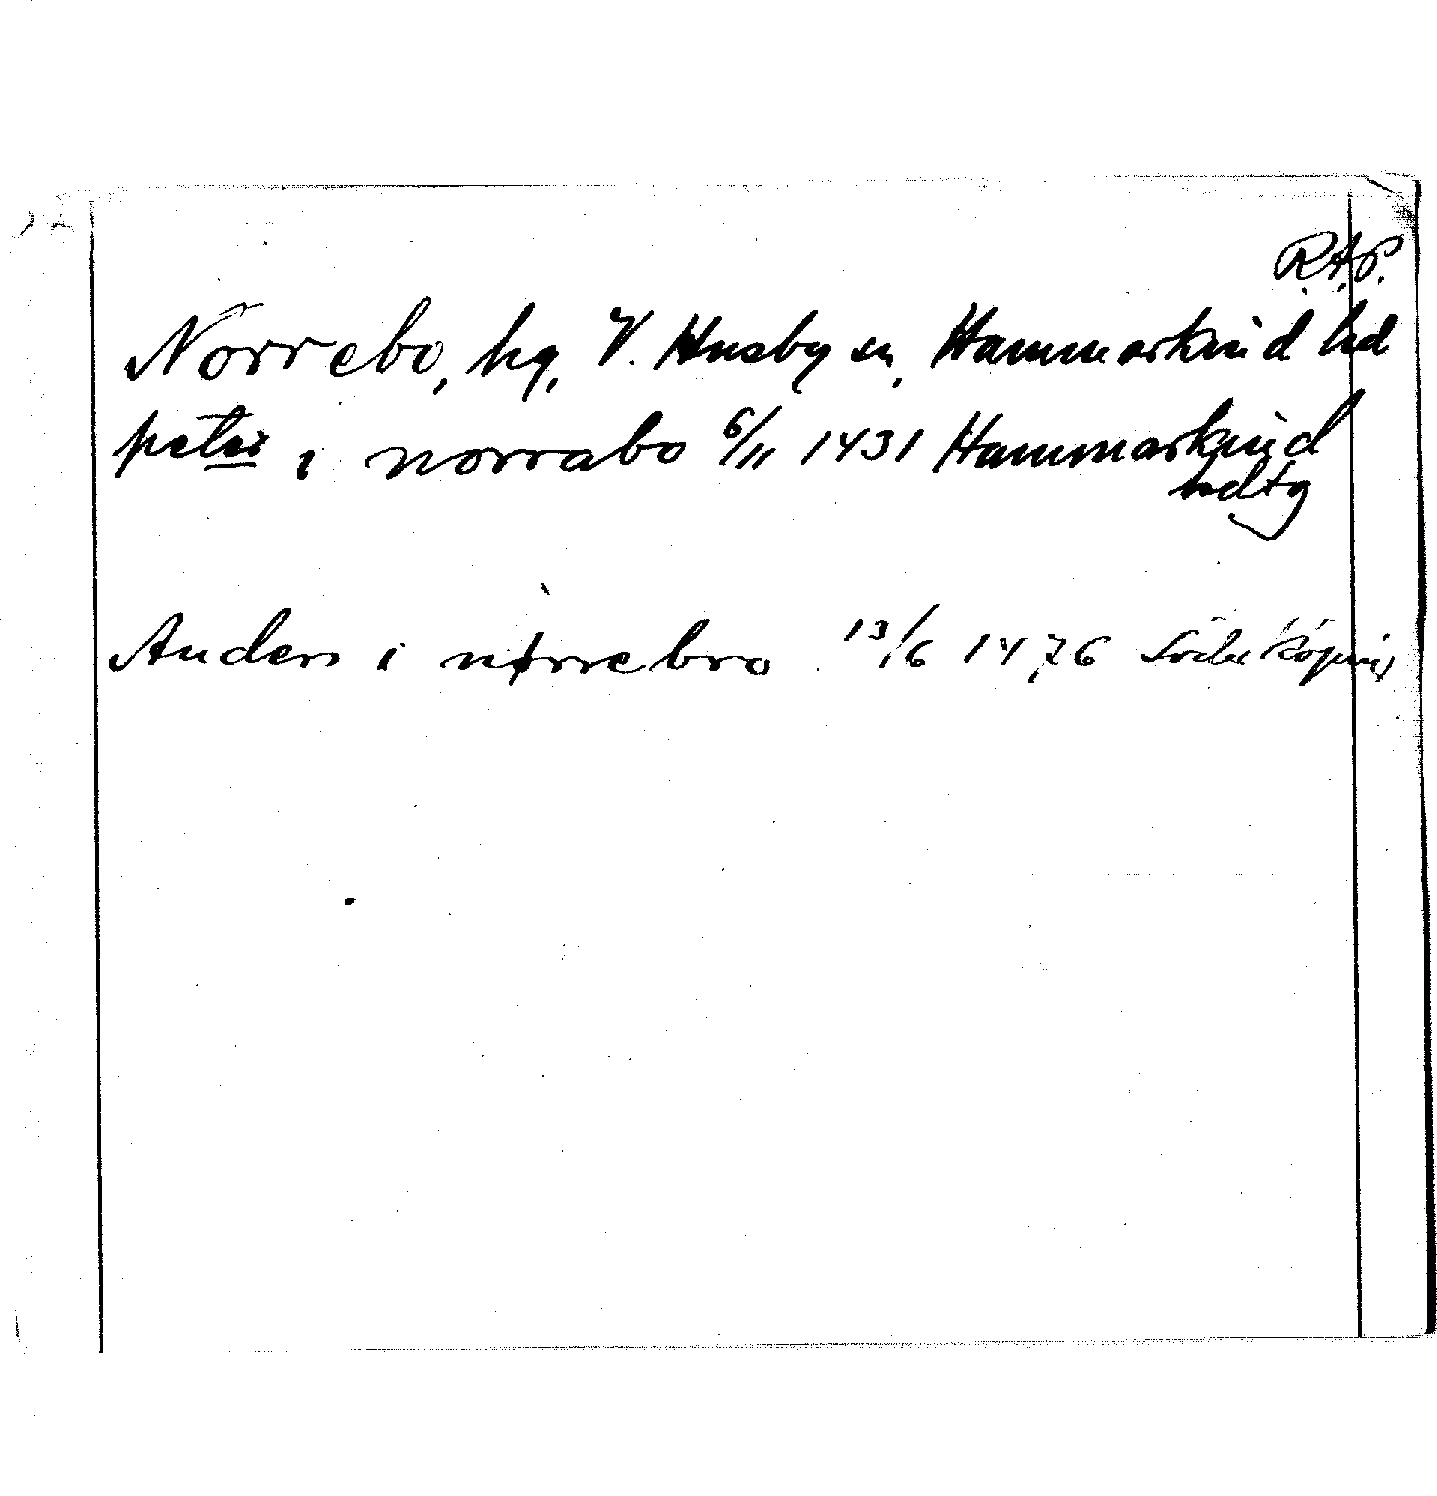 R.A.P.
Norrebo, hg, V. Husby sn, Hammarkind hd
peter i norrabo 6/11 1431 Hammarkind
hdtg
Anders i nørrebro 13/6 1476 Söderköping